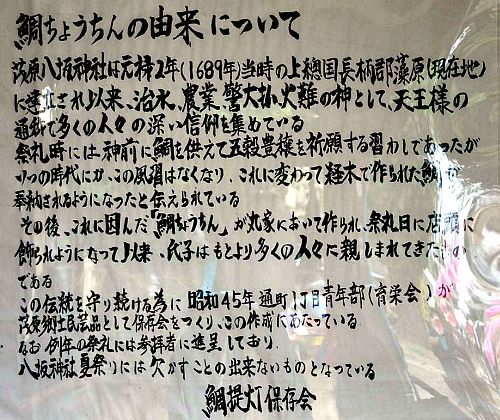 鯛ちょうちんの由来について
茂原八坂神社は元禄2年(1689年)当時の上總国長柄郡藻原(現在地)
に建立され以来、治水、農業、警大払、火難の神として、天王様の
通称で多くの人々の深い信仰を集めている
祭礼時には神前に鯛を供えて五穀豊穣を祈願する習わしであったが
いつの時代にか、この風習はなくなり、これに変わって経木で作られた鯛が
奉納されるようになったと伝えられている
その後、これに因んだ「鯛ちょうちん」が丸家において作られ、祭礼日に店頭に
飾られようになって以来、氏子はもとより多くの人々に親しまれてきたもの
である
この伝統を守り続ける為に昭和45年通町1丁目青年部(育栄会)が
茂原郷土民芸品として保存会をつくり、この作成にあたっている
なお例年の祭礼には参拝者に進呈しており、
八坂神社夏祭りには欠かすことの出来ないものとなつている
鯛提灯保存会